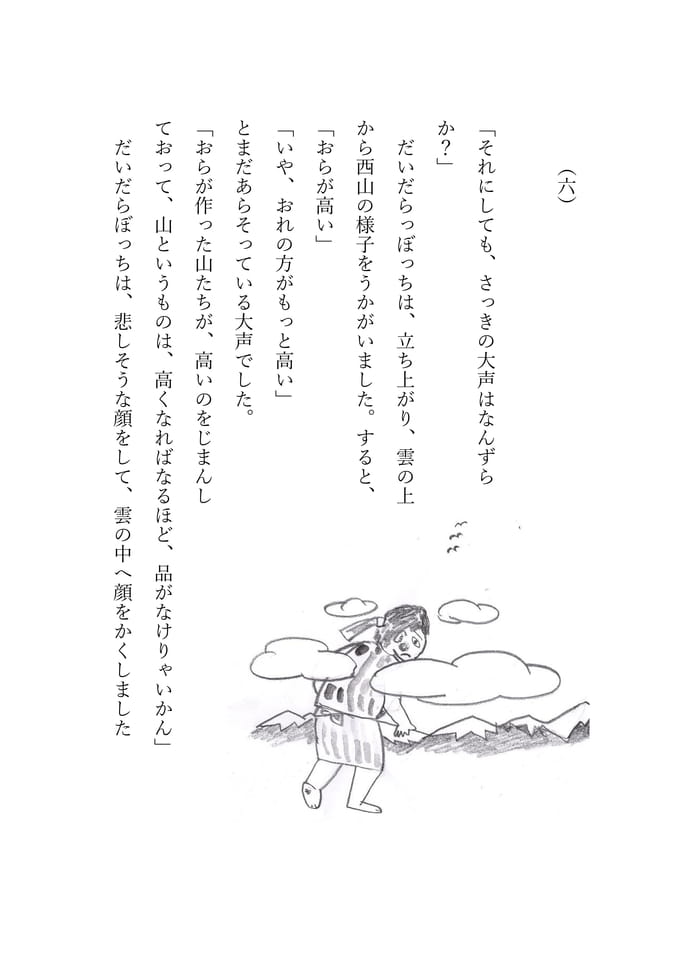 （六）
「それにしても、さっきの大声はなんずら
か？」
　だいだらっぼっちは、立ち上がり、雲の上
から西山の様子をうかがいました。すると、
「おらが高い」
「いや、おれの方がもっと高い」
とまだあらそっている大声でした。
「おらが作った山たちが、高いのをじまんし
ておって、山というものは、高くなればなるほど、品がなけりゃいかん」
　だいだらぼっちは、悲しそうな顔をして、雲の中へ顔をかくしました